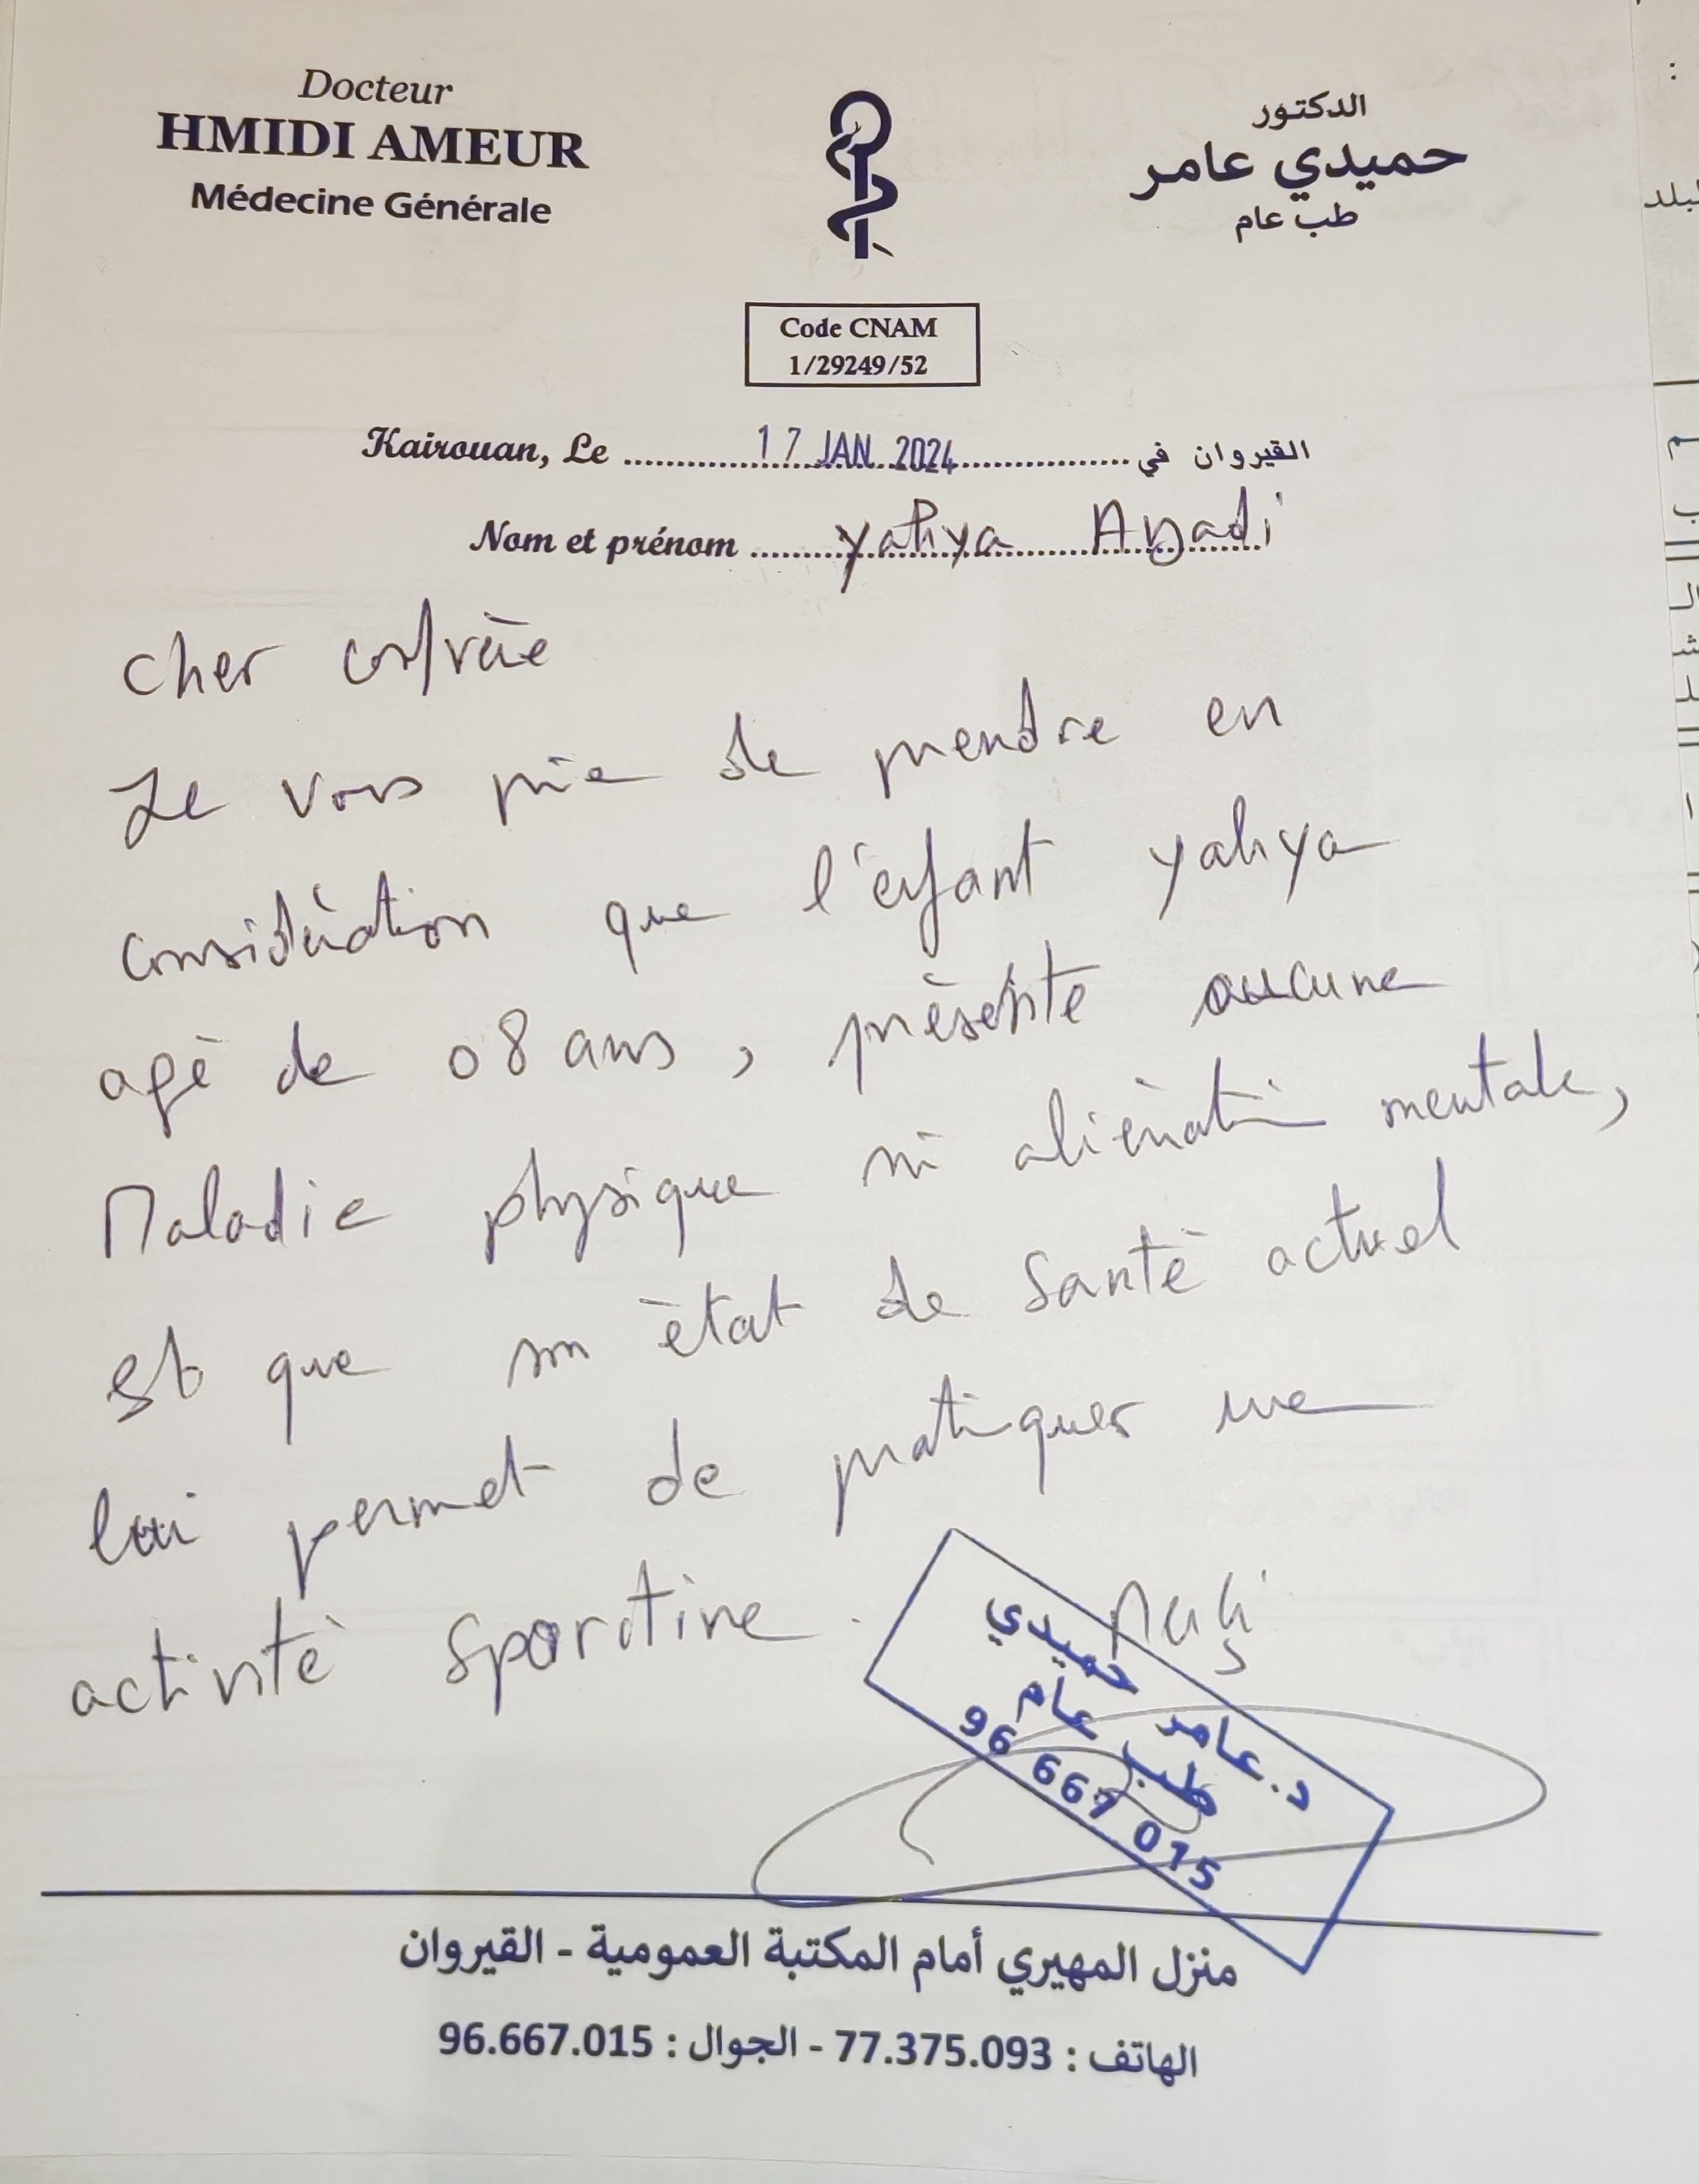 Docteur
HMIDI AMEUR
Médecine Générale
الدكتور
حميدي عامر
طب عام
Code CNAM
1/29249/52
Kairouan, Le 17 JAN 2024 القيروان في
Nom et prénom yahya Abadi
cher confrère
Je vous prie de prendre en
considération que l'enfant yahya
agé de 08 ans, présente aucune
Maladie physique ni aliénation mentale,
est que son état de santé actuel
lui permet de pratiquer une
activité sportive.
د. عامر حميدي
طب عام
96 667 015
منزل المهيري أمام المكتبة العمومية - القيروان
الهاتف : 77.375.093 - الجوال : 96.667.015